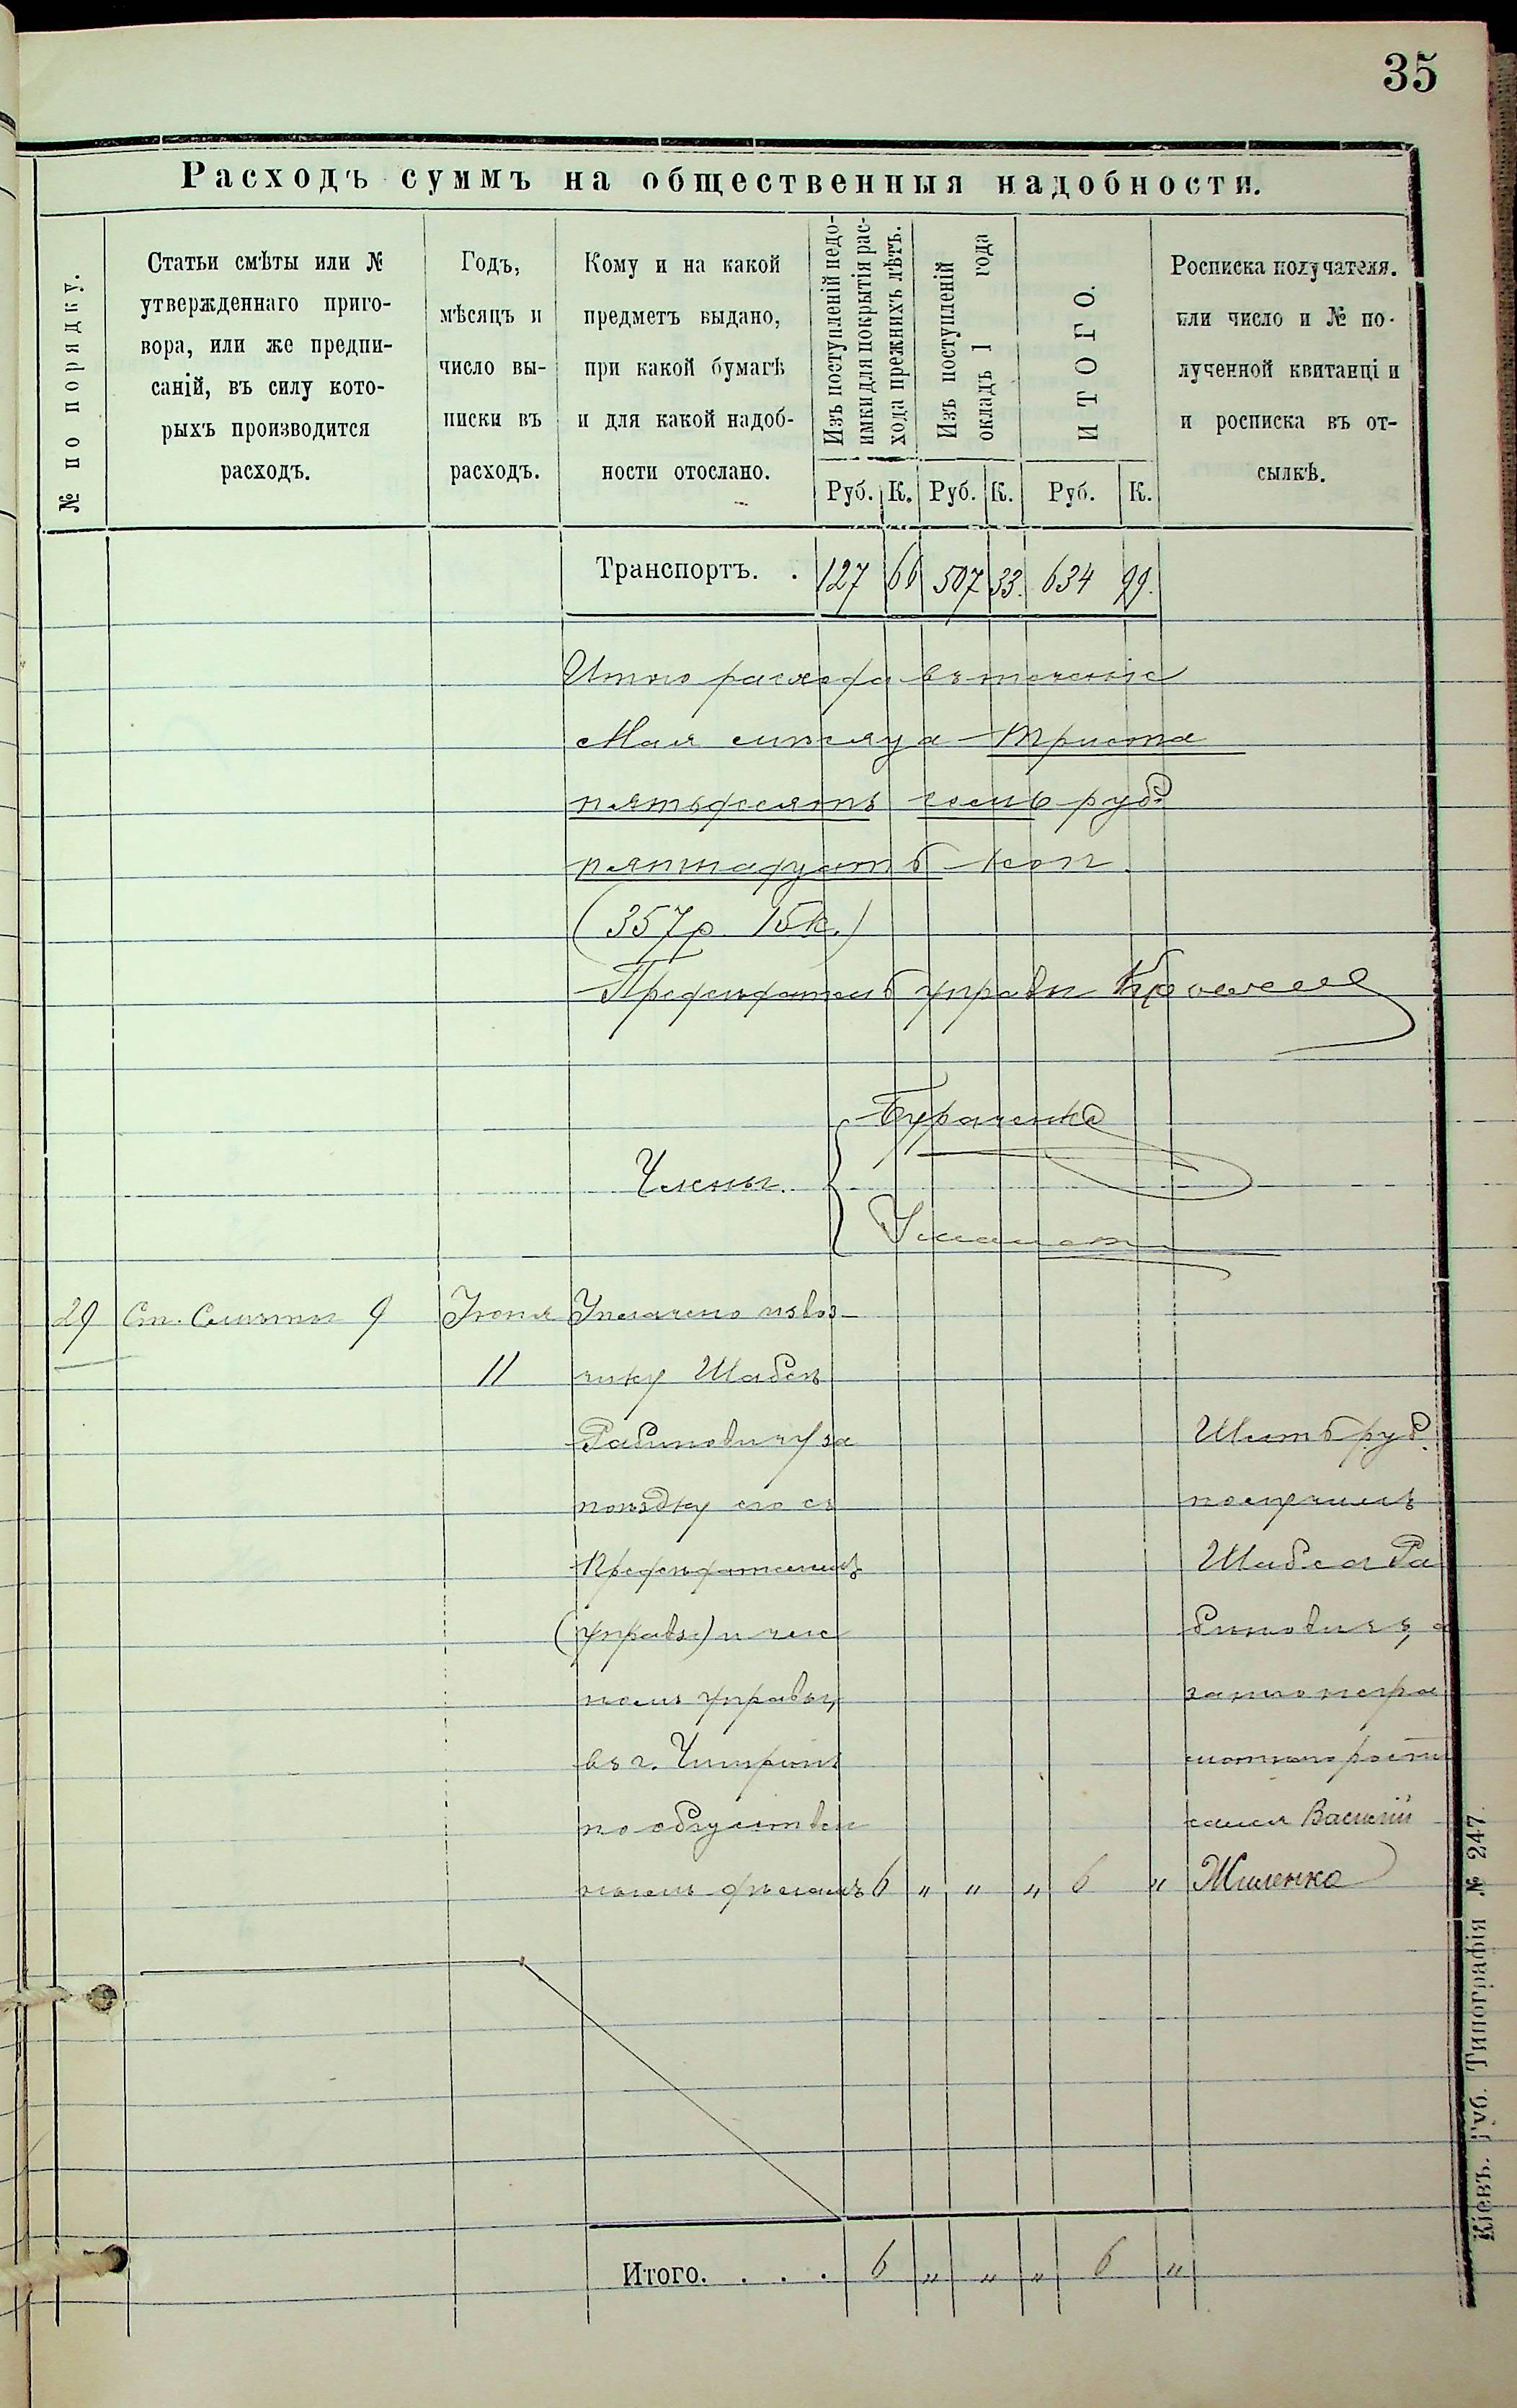 35
Расходъ суммъ на общественныя надобности.
№ по порядку.
Статьи смѣты или №
утвержденнаго приго-
вора, или же предпи-
саній, въ силу кото-
рыхъ производится
расходъ.
Годъ,
мѣсяцъ и
число вы-
писки въ
расходъ.
Кому и на какой
предметъ выдано,
при какой бумагѣ
и для какой надоб-
ности отослано.
Изъ поступленій недо-
имки для покрытія рас-
хода прежнихъ лѣтъ.
Изъ поступленій
окладъ 1 года
ИТОГО.
Росписка получателя.
или число и № по-
лученной квитанціи
и росписка въ от-
сылкѣ.
Руб. К. Руб. К. Руб. К.
Транспортъ. . 127 66 507 33. 634 99.
Итого расхода въ теченіе
Мая мѣсяца триста
пятьдесятъ семь руб.
пятнадцать коп.
(357р 15к.)
Предсѣдатель управы
Члены.
29 Ст. Смѣты 9 Іюня Уплачено извоз-
11 чику Шабсѣ
Рабиновичу за
поѣздку его съ
Предсѣдателемъ
(управы) и чле
номъ управы,
въ г. Чигринъ
по обществен
нымъ дѣламъ 6 „ „ „ 6 „
Шесть руб.
получилъ
Шабса Ра
биновичъ, а
за него негра
мотнаго роспи
сался Василій
Жиленко
Итого. . . . 6 „ „ „ 6 „
Кіевъ. Губ. Типографія № 247.